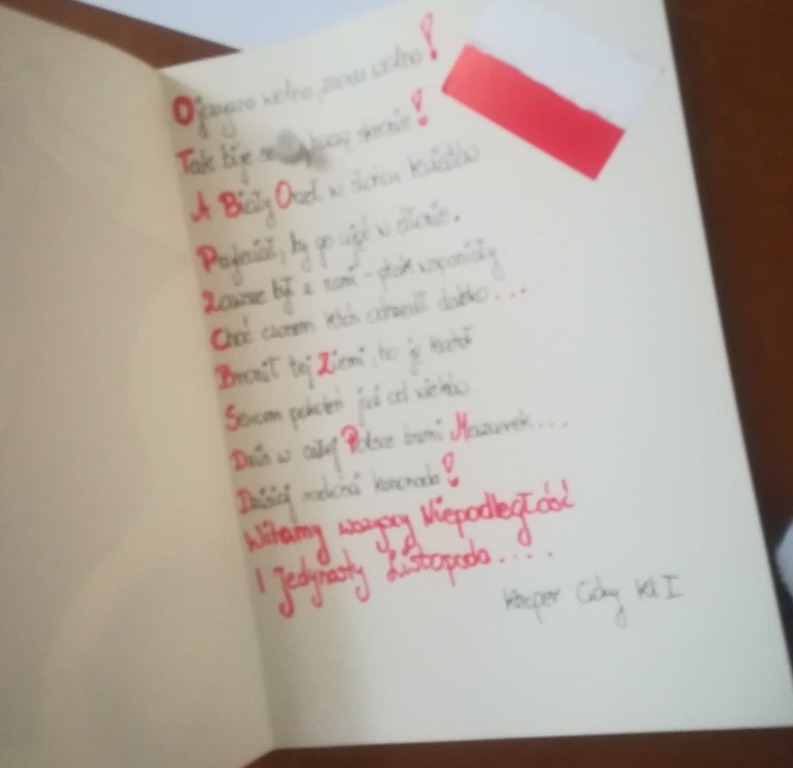 Ojczyzna wolna, znowu wolna!
Tak bije dumnie!
A Biały Orzeł w słońcu kwiatów
by go ująć w dłonie.
Zawsze był z nami - ptak wspaniały
Choć czasem ktoś odszedł daleko...
Bronił tej Ziemi, bo ją kochał
Sercem pokoleń już od wieków
Dziś w całej Polsce brzmi Mazurek...
Dzisiaj radosna kanonada!
Witamy wszyscy Niepodległość
I jedynasty Listopada....
Kacper Kl I